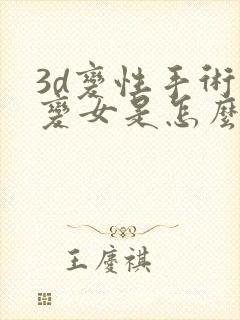 3d變性手術
變女是怎麼
王慶祺